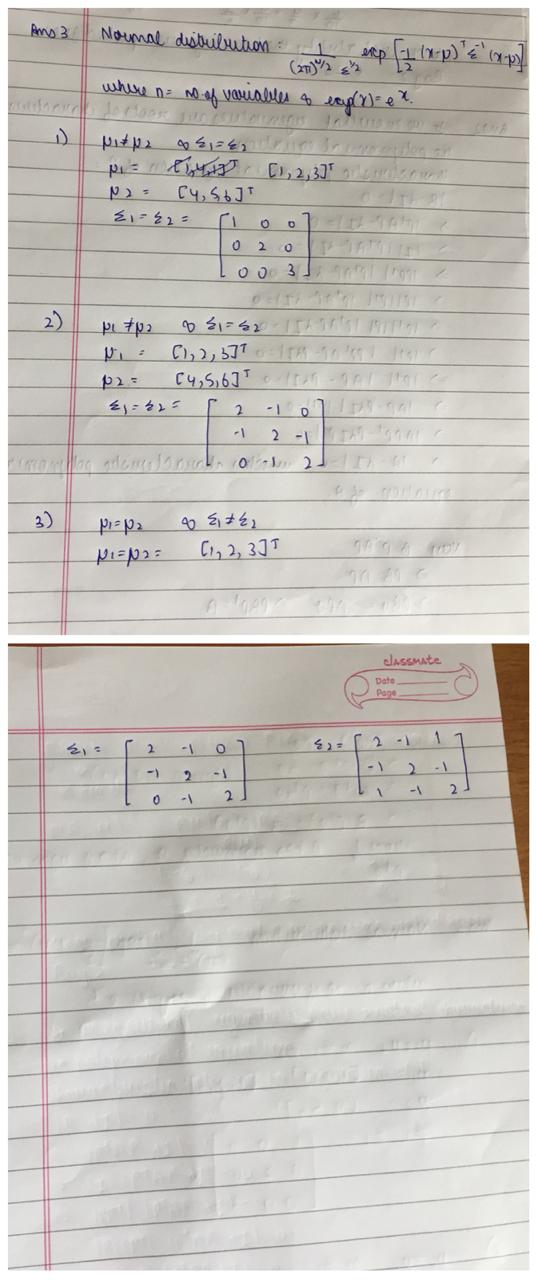 Ans 3 Normal distribution : 1/((2π)^(n/2) Σ^(1/2)) exp[-1/2 (x-μ)^T Σ^-1 (x-μ)]
where n = no of variables & exp(x) = e^x.
1) μ1≠μ2 & Σ1=Σ2
μ1 = [1,2,3]^T
μ2 = [4,5,6]^T
Σ1 = Σ2 = [1 0 0
0 2 0
0 0 3]
2) μ1≠μ2 & Σ1=Σ2
μ1 = [1,2,3]^T
μ2 = [4,5,6]^T
Σ1=Σ2 = [2 -1 0
-1 2 -1
0 -1 2]
3) μ1=μ2 & Σ1≠Σ2
μ1=μ2 = [1,2,3]^T
classmate
Date
Page
Σ1 = [2 -1 0 Σ2 = [2 -1 1
-1 2 -1 -1 2 -1
0 -1 2] 1 -1 2]